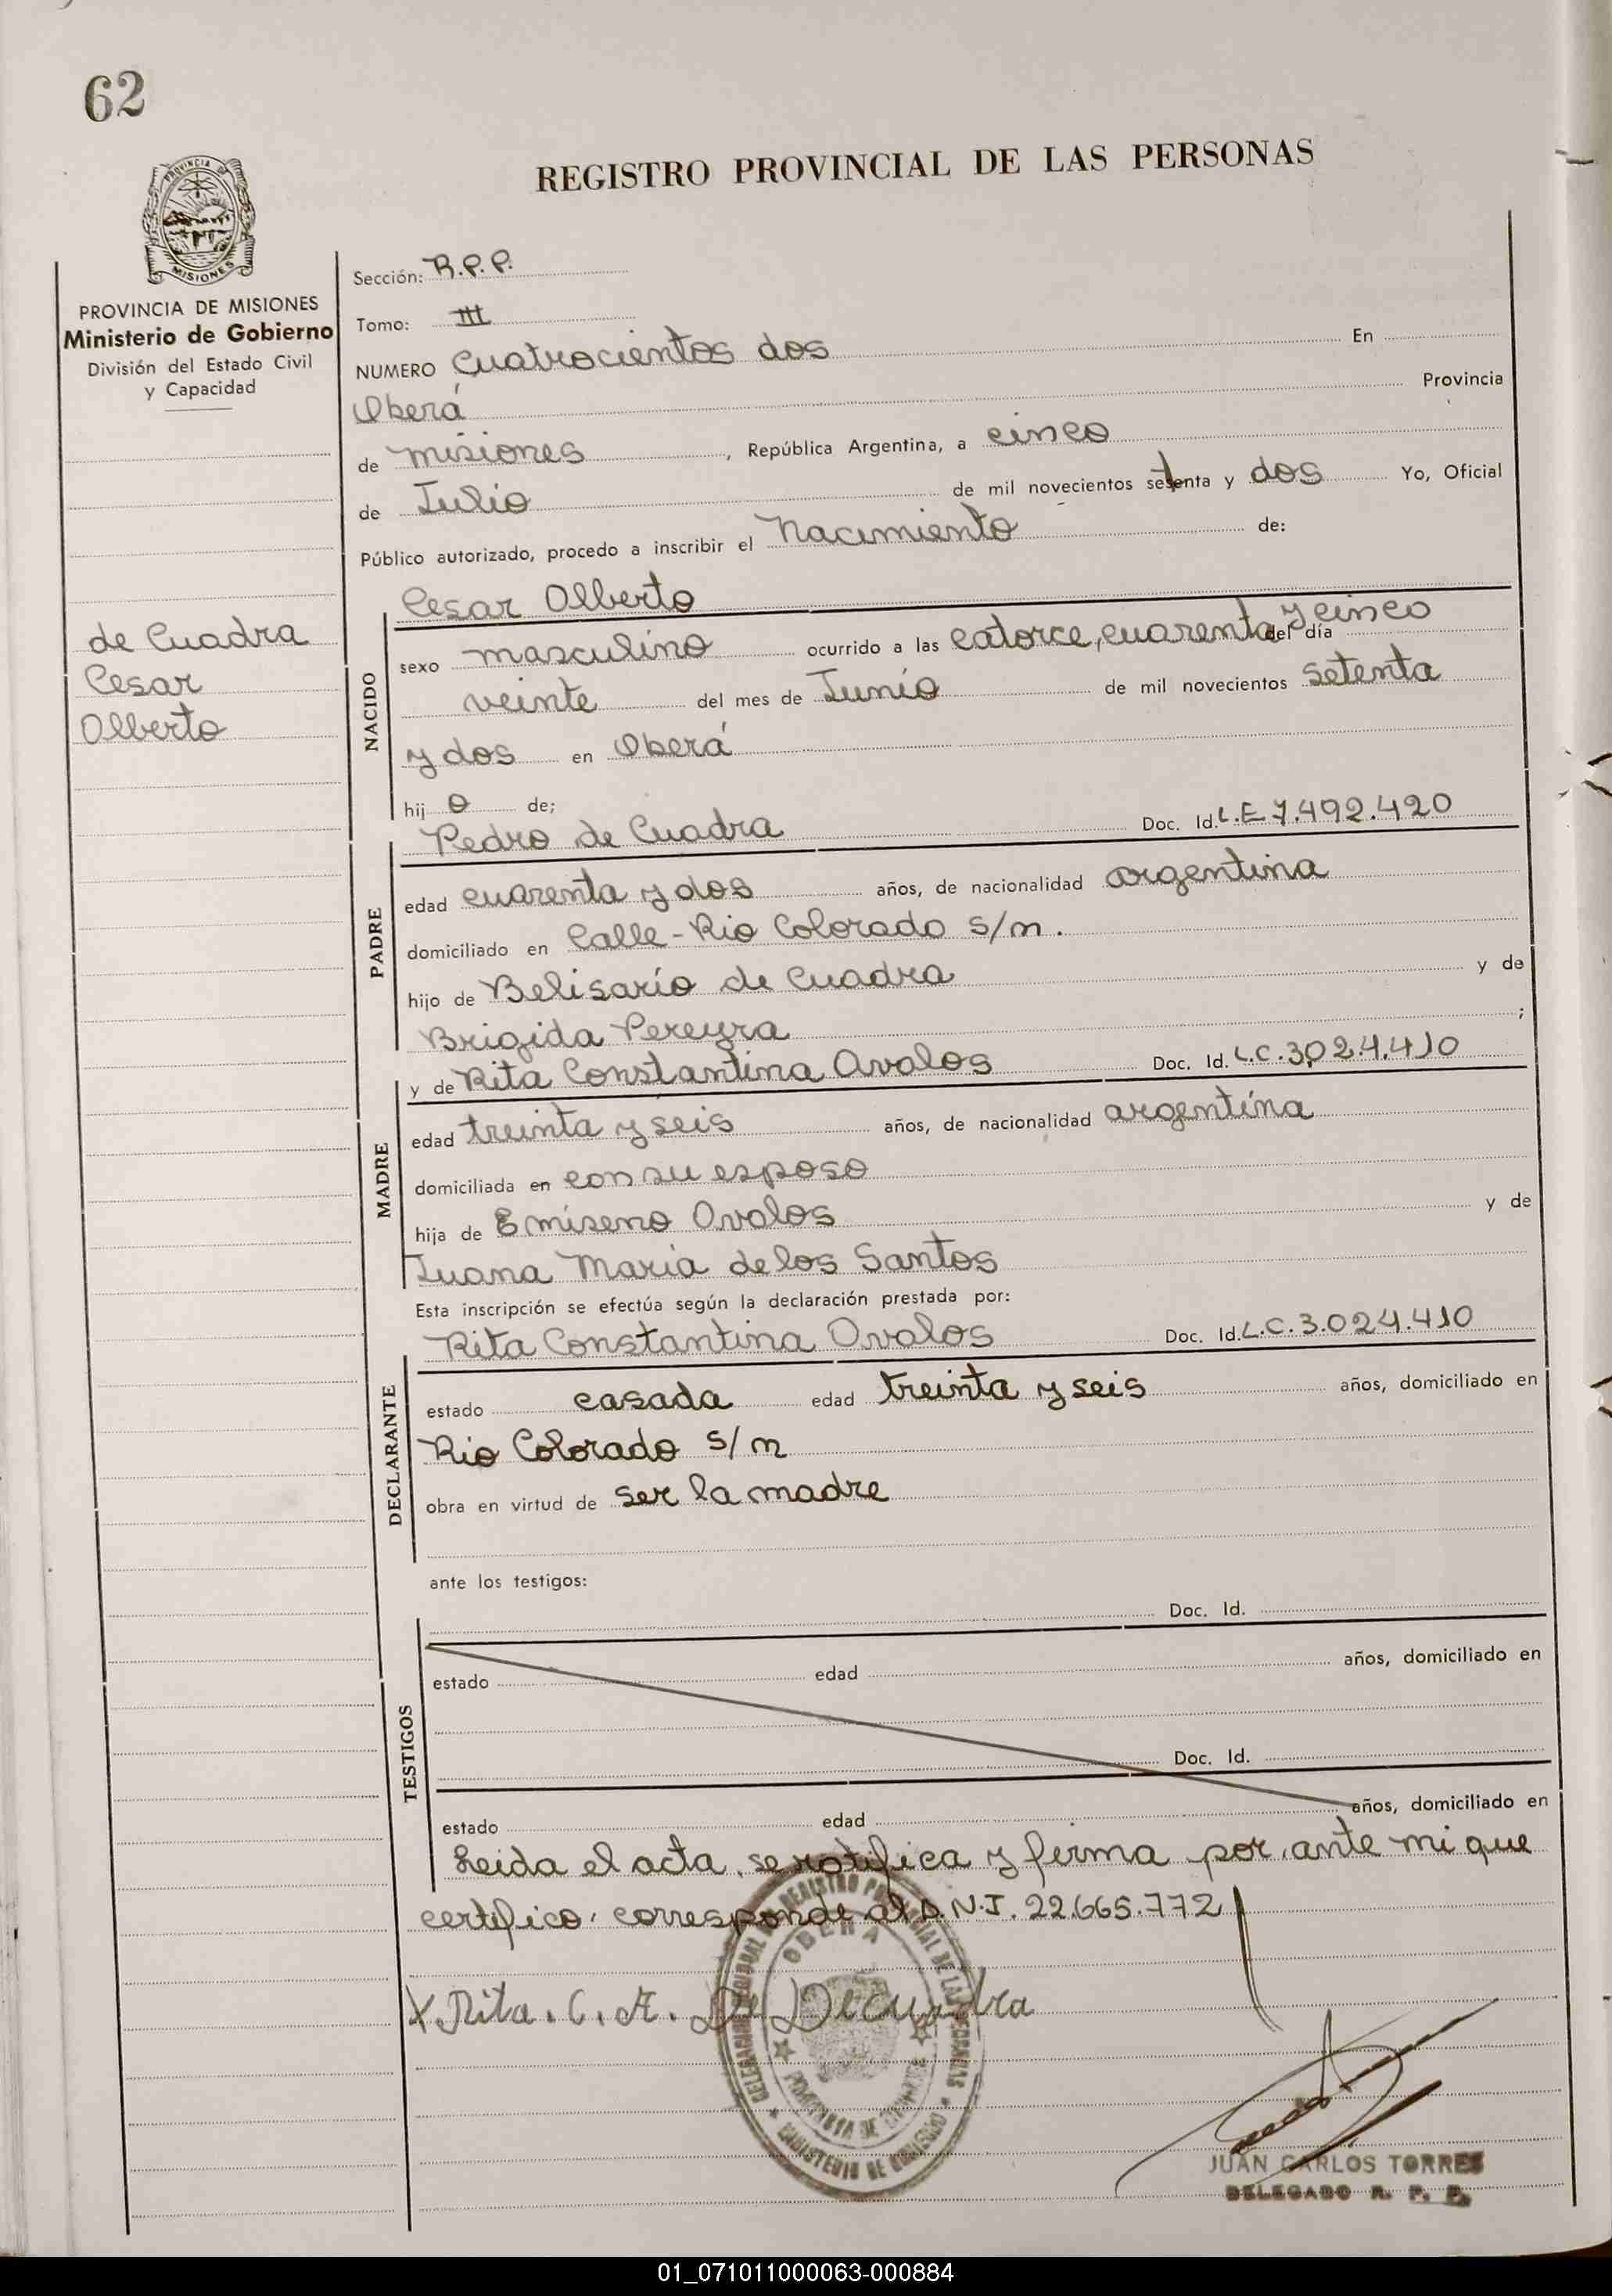 62
REGISTRO PROVINCIAL DE LAS PERSONAS
PROVINCIA
MISIONES
PROVINCIA DE MISIONES
Ministerio de Gobierno
División del Estado Civil
y Capacidad
de Cuadra
Cesar
Alberto
Sección: R.P.P.
Tomo: III
NUMERO Cuatrocientos dos En
Oberá Provincia
de misiones, República Argentina, a cinco
de Julio de mil novecientos setenta y dos Yo, Oficial
Público autorizado, procedo a inscribir el Nacimiento de:
Cesar Alberto
NACIDO
sexo masculino ocurrido a las catorce, cuarenta y cinco del día
veinte del mes de Junio de mil novecientos setenta
y dos en Oberá
hij o de;
Pedro de Cuadra Doc. Id. L.E 7.492.420
PADRE
edad cuarenta y dos años, de nacionalidad argentina
domiciliado en Calle - Rio Colorado s/n.
hijo de Belisario de Cuadra y de
Brigida Pereyra ;
y de Rita Constantina Avalos Doc. Id. L.C. 3.024.410
MADRE
edad treinta y seis años, de nacionalidad argentina
domiciliada en con su esposo
hija de Emiseno Avalos y de
Juana Maria de los Santos
Esta inscripción se efectúa según la declaración prestada por:
Rita Constantina Avalos Doc. Id. L.C. 3.024.410
DECLARANTE
estado casada edad treinta y seis años, domiciliado en
Rio Colorado s/n
obra en virtud de ser la madre
ante los testigos:
Doc. Id.
TESTIGOS
estado edad años, domiciliado en
Doc. Id.
estado edad años, domiciliado en
Leida el acta, se ratifica y firma por ante mi que
certifico. corresponde al D.N.I. 22.665.772
X Rita. C. A. De Decuadra
OBERA
MINISTERIO DE GOBIERNO
JUAN CARLOS TORRES
DELEGADO R. P. P.
01_071011000063-000884